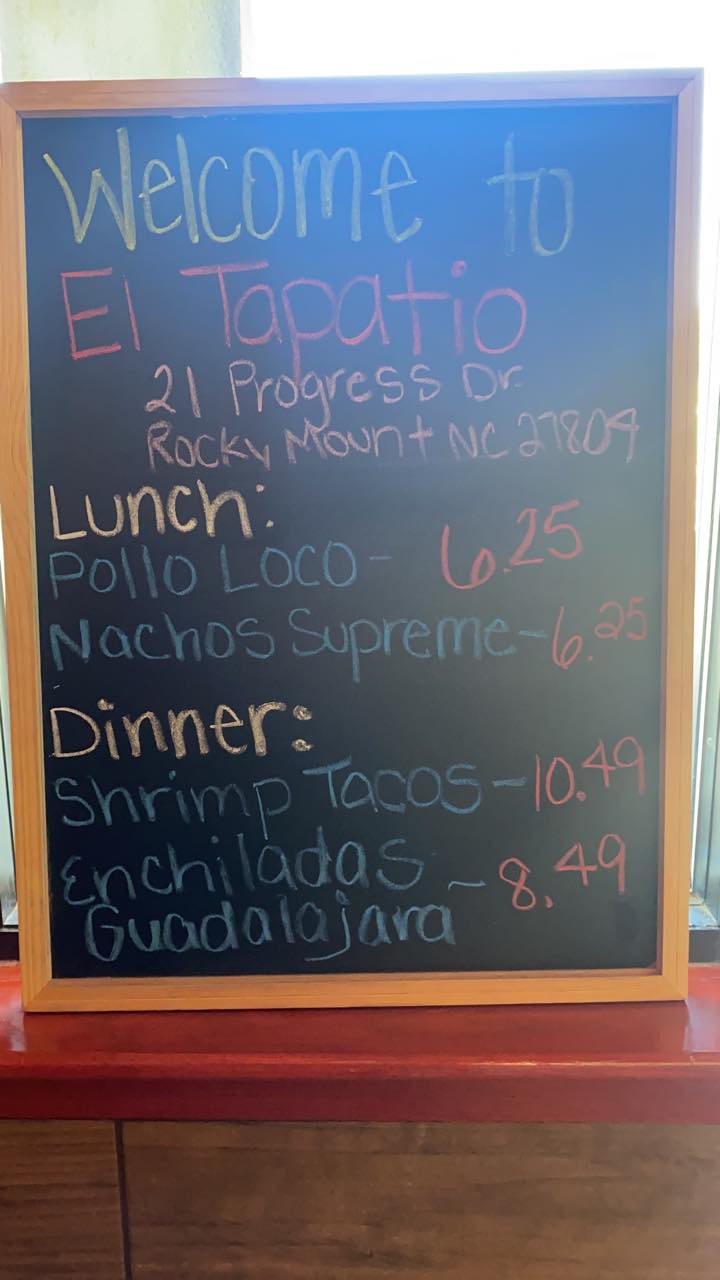 Welcome to
El Tapatio
21 Progress Dr.
Rocky Mount NC 27804
Lunch:
Pollo Loco- 6.25
Nachos Supreme-6.25
Dinner:
Shrimp Tacos-10.49
Enchiladas - 8.49
Guadalajara